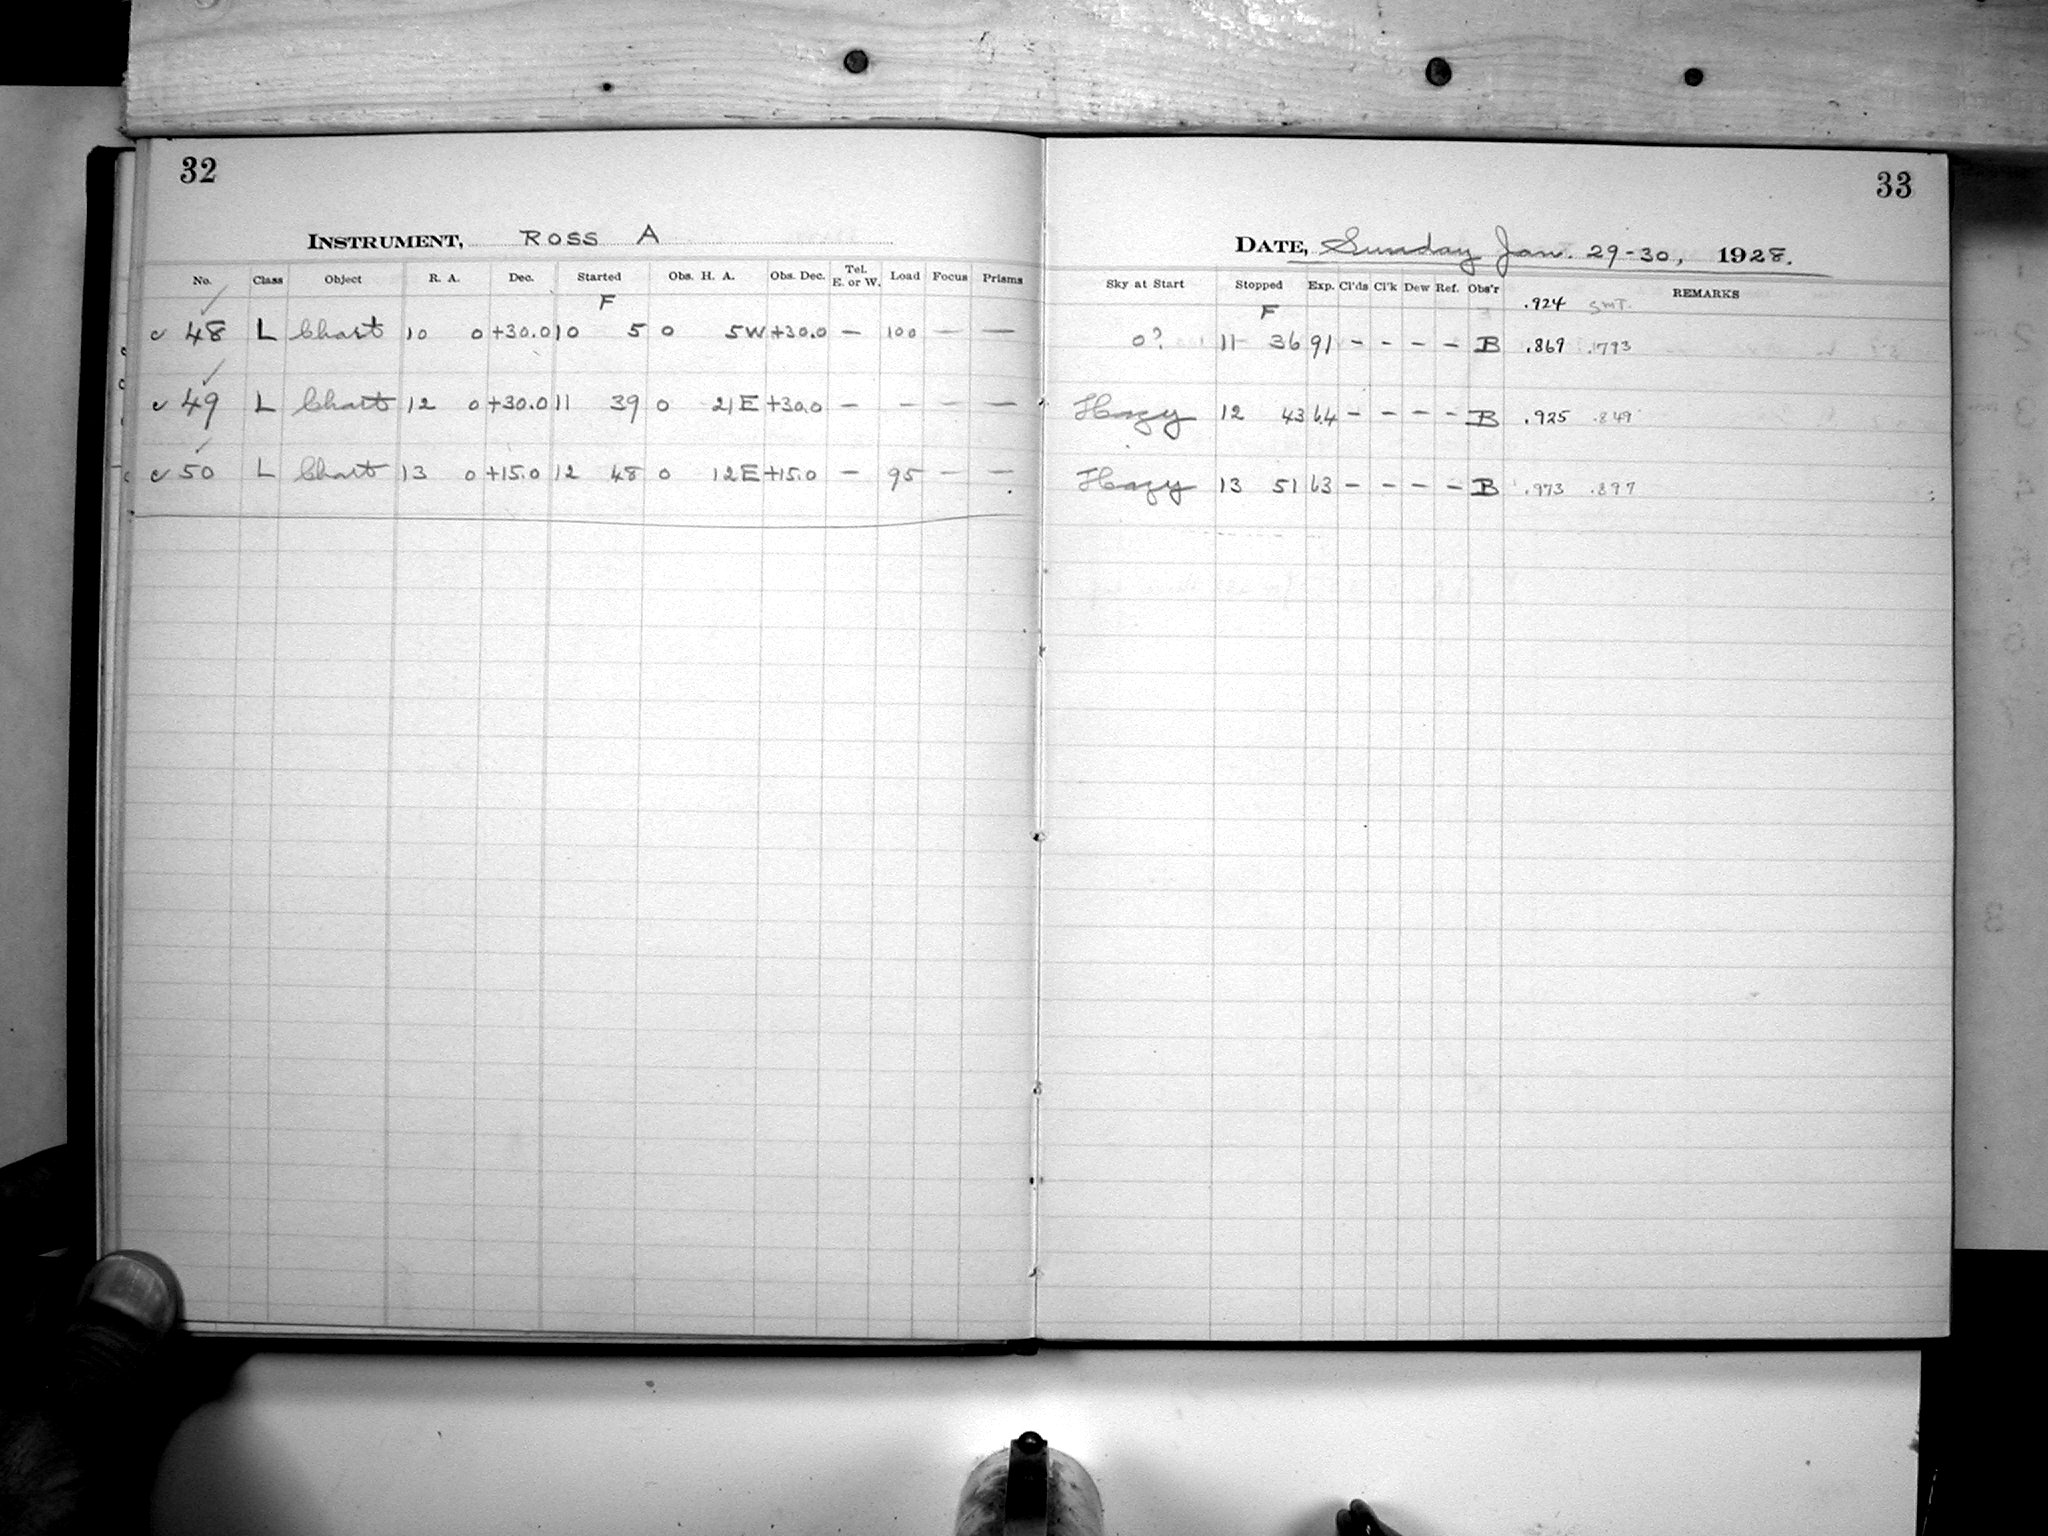 32
INSTRUMENT, ROSS A
No. Class Object R. A. Dec. Started Obs. H. A. Obs. Dec. Tel. E. or W. Load Focus Prisms
F
48 L Chart 10 0 +30.0 10 5 0 5W +30.0 — 100 — —
49 L Chart 12 0 +30.0 11 39 0 21E +30.0 — — — —
50 L Chart 13 0 +15.0 12 48 0 12E +15.0 — 95 — —
33
DATE, Sunday Jan. 29-30, 1928.
Sky at Start Stopped Exp. Cl'ds Cl'k Dew Ref. Obs'r REMARKS
F .924 SMT.
0? 11 36 91 - - - - B .869 .1793
Hazy 12 43 64 - - - - B .925 .849
Hazy 13 51 63 - - - - B .973 .897